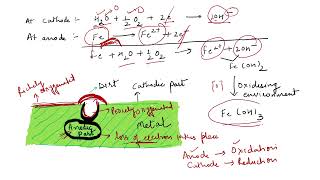 At Cathode :- H₂O + ½O₂ + 2e⁻ → 2OH⁻
At anode :- Fe → Fe²⁺ + 2e⁻
Fe + H₂O + ½O₂ → Fe²⁺ + 2OH⁻
Fe(OH)₂
[O] Oxidising environment
Fe(OH)₃
Richly oxygenated
Dirt
Cathodic part
Poorly oxygenated
Metal
Anodic part
loss of electron takes place
Anode → Oxidation
Cathode → Reduction